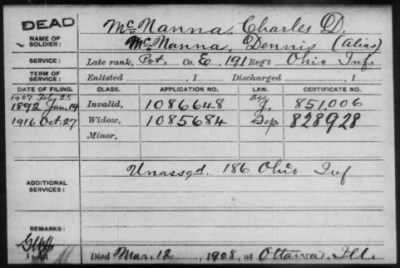 DEAD
NAME OF SOLDIER: McNanna, Charles D.
McNanna, Dennis (Alias)
SERVICE: Late rank, Pvt. Co. E, 191 Reg't Ohio Inf.
TERM OF SERVICE: Enlisted , 1 Discharged , 1
DATE OF FILING. CLASS. APPLICATION NO. LAW. CERTIFICATE NO.
1907 Feb 25
1892 Jan. 19 Invalid, 1086648 851,006
1916 Oct. 27 Widow, 1085684 828928
Minor,
ADDITIONAL SERVICES: Unassgd. 186 Ohio Inf
REMARKS:
Died Mar. 12, 1908, at Ottawa, Ill.